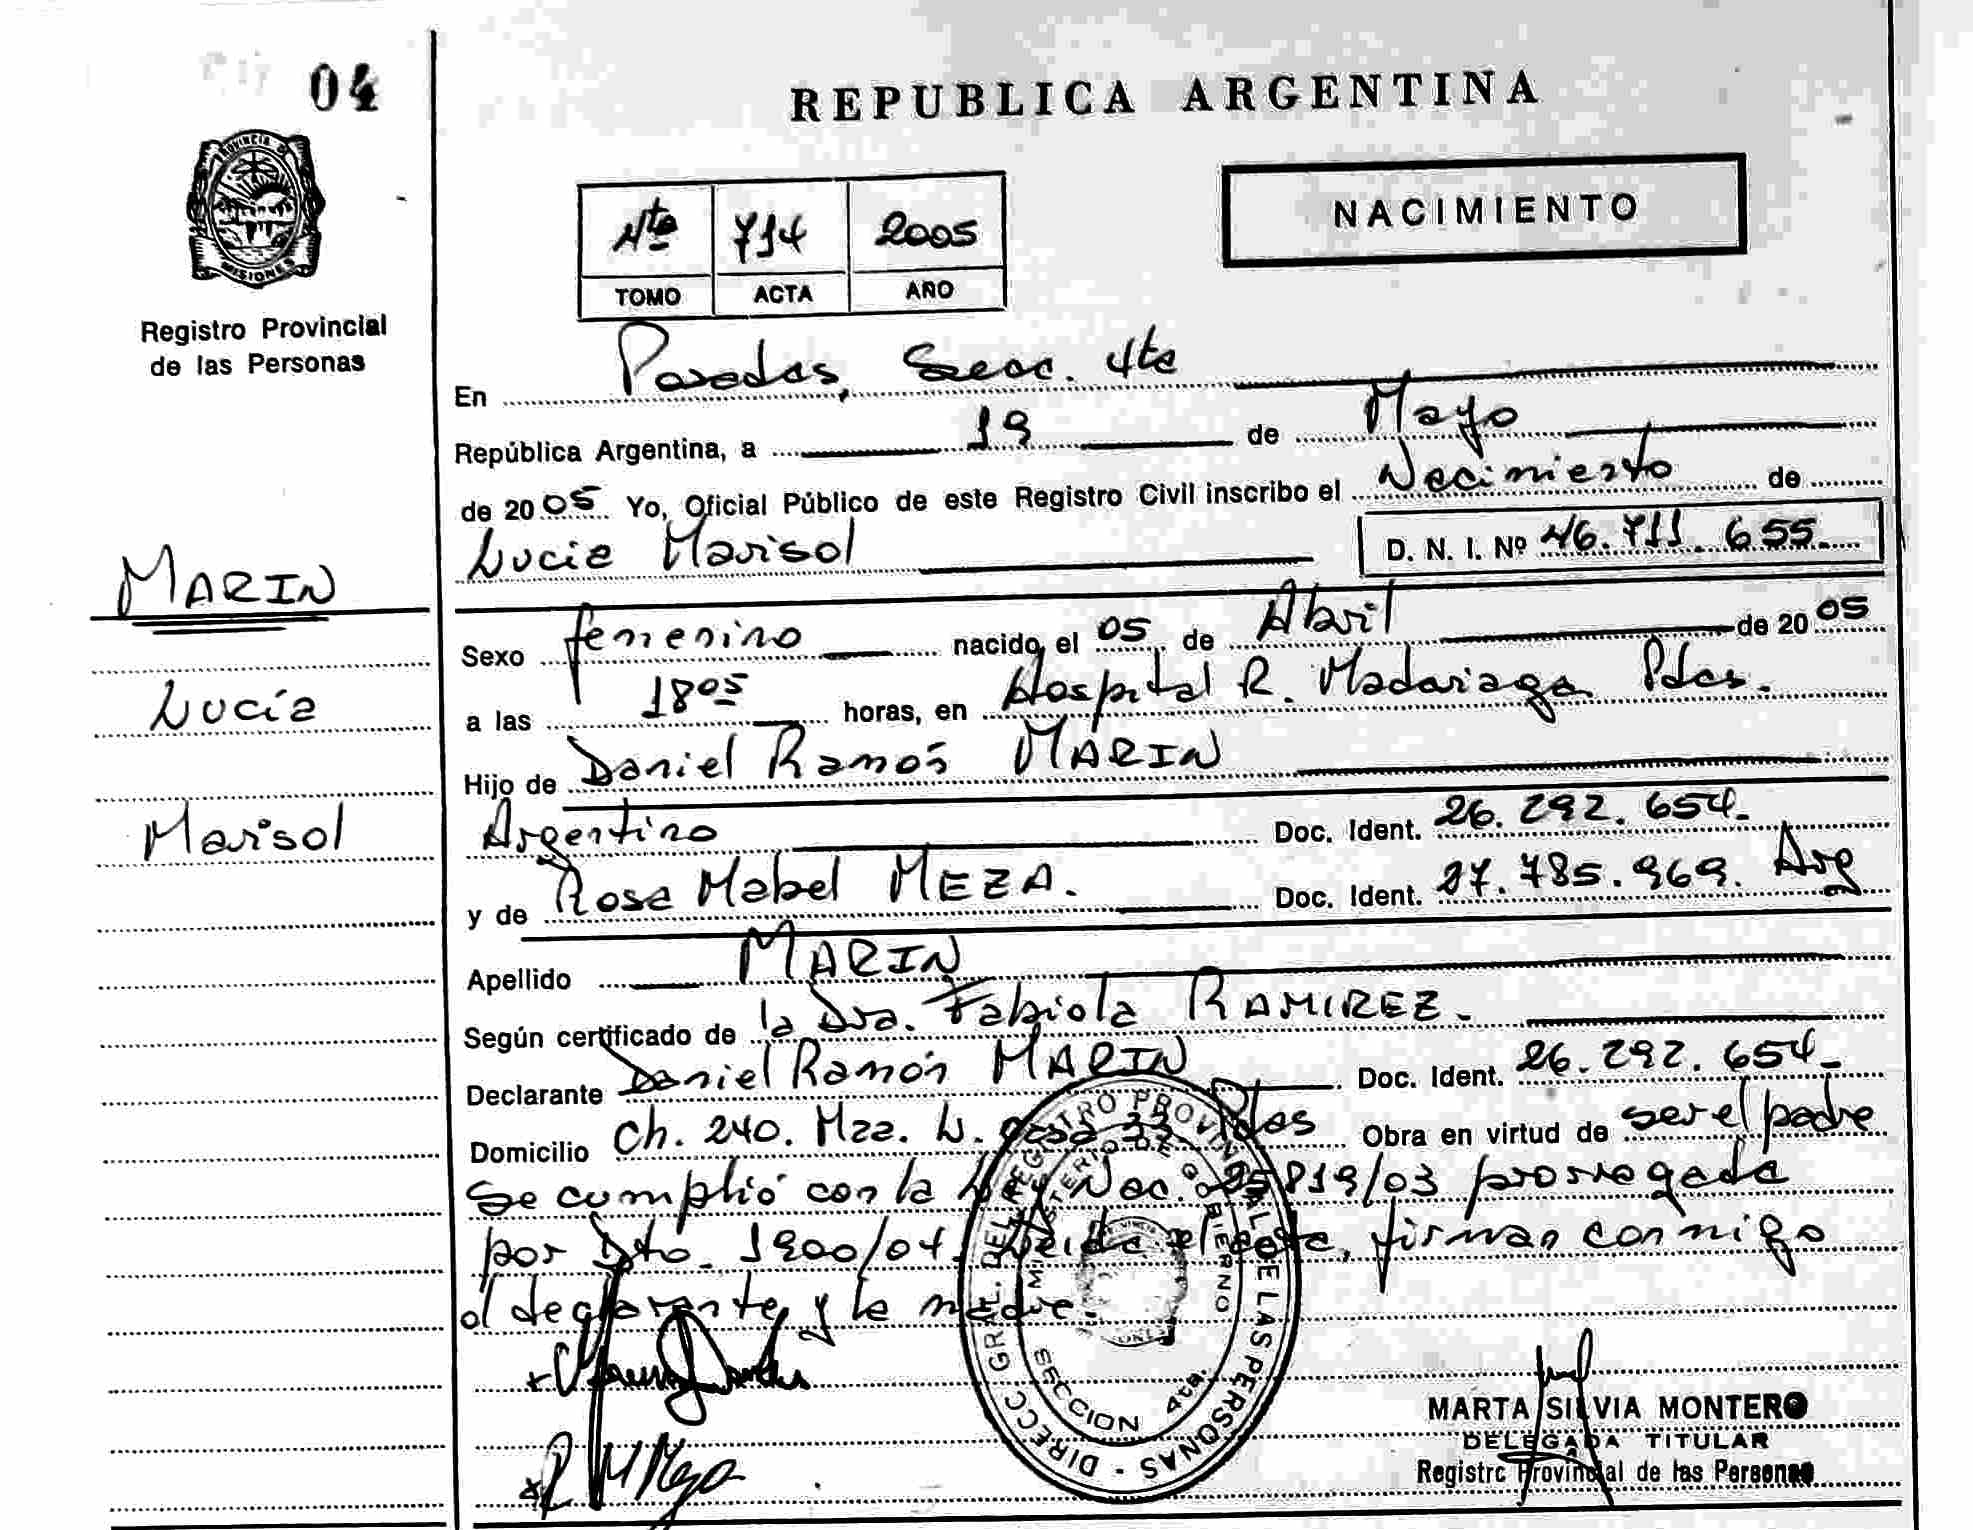 04
REPUBLICA ARGENTINA
PROVINCIA DE
MISIONES
Registro Provincial
de las Personas
4ta 714 2005
TOMO ACTA AÑO
NACIMIENTO
En Posadas, Secc. 4ta
República Argentina, a 19 de Mayo
de 2005 Yo, Oficial Público de este Registro Civil inscribo el Nacimiento de
Lucía Marisol D. N. I. Nº 46.711.655.
MARIN
Lucía
Marisol
Sexo femenino nacido el 05 de Abril de 2005
a las 18 05 horas, en Hospital R. Madariaga Pdas.
Hijo de Daniel Ramón MARIN
Argentino Doc. Ident. 26.292.654.
y de Rosa Mabel MEZA. Doc. Ident. 27.785.969. Arg
Apellido MARIN
Según certificado de la Dra. Fabiola RAMIREZ.
Declarante Daniel Ramón MARIN Doc. Ident. 26.292.654.
Domicilio Ch. 240. Mza. L. casa 33 Pdas Obra en virtud de ser el padre
Se cumplió con la Ley Nac. 25819/03 prorrogada
por Dto. 1900/04. Leída el acta, firman conmigo
el declarante y la madre.
DIRECC GRAL. DEL REGISTRO PROVINCIAL DE LAS PERSONAS
MINISTERIO DE GOBIERNO
SECCION 4ta.
R M Meza
MARTA SILVIA MONTERO
DELEGADA TITULAR
Registro Provincial de las Personas